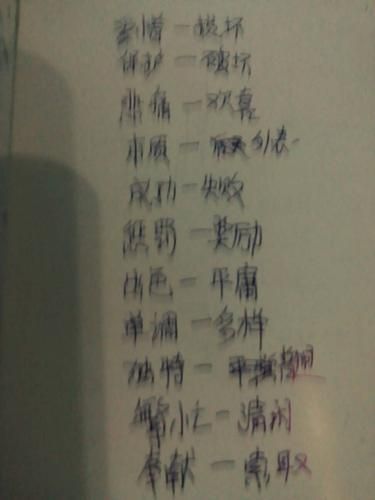 爱惜—毁坏
保护—破坏
悲痛—欢喜
本质—外表
成功—失败
惩罚—奖励
出色—平庸
单调—多样
独特—普通
繁忙—清闲
奉献—索取